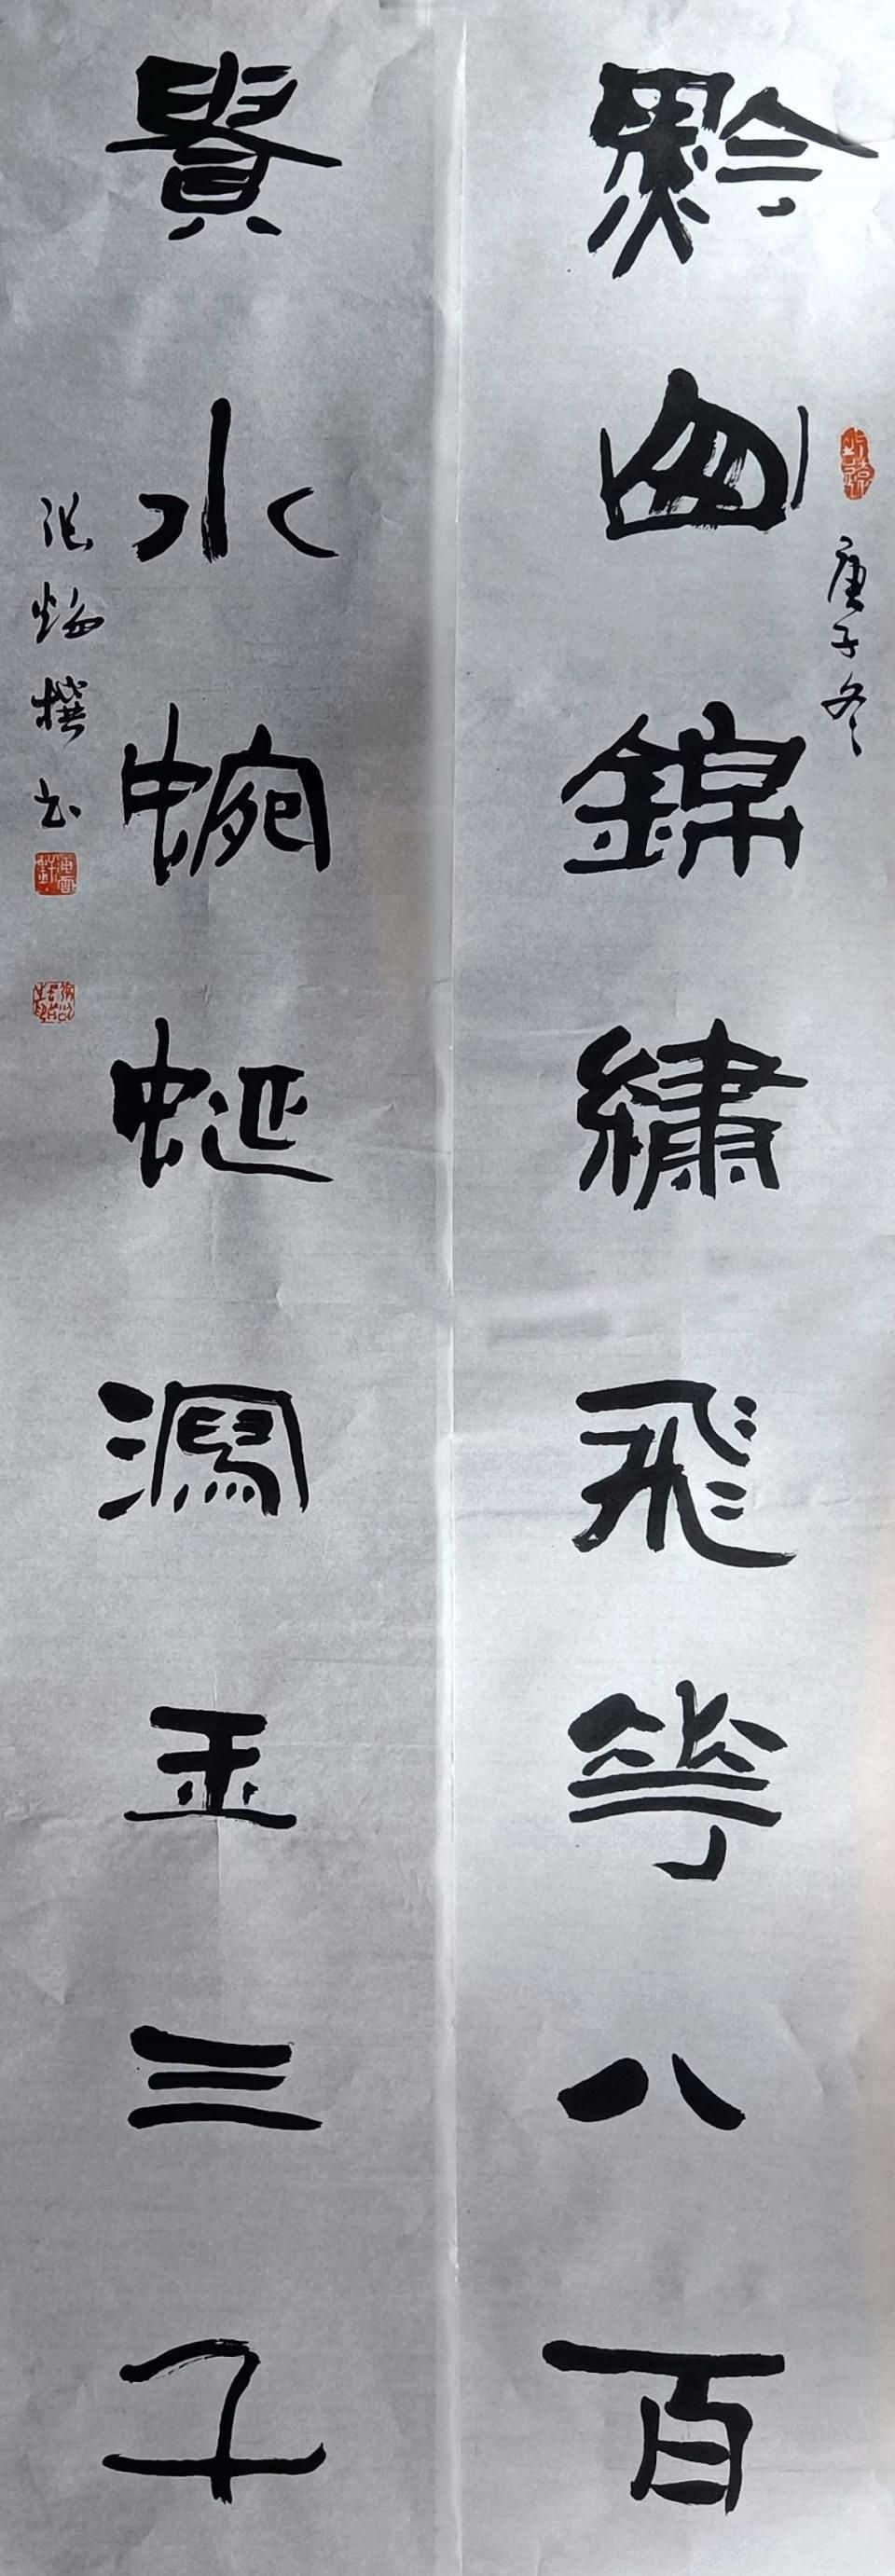 黔山錦繡飛花八百
庚子冬
貴水蜿蜒瀉玉三千
张撰书